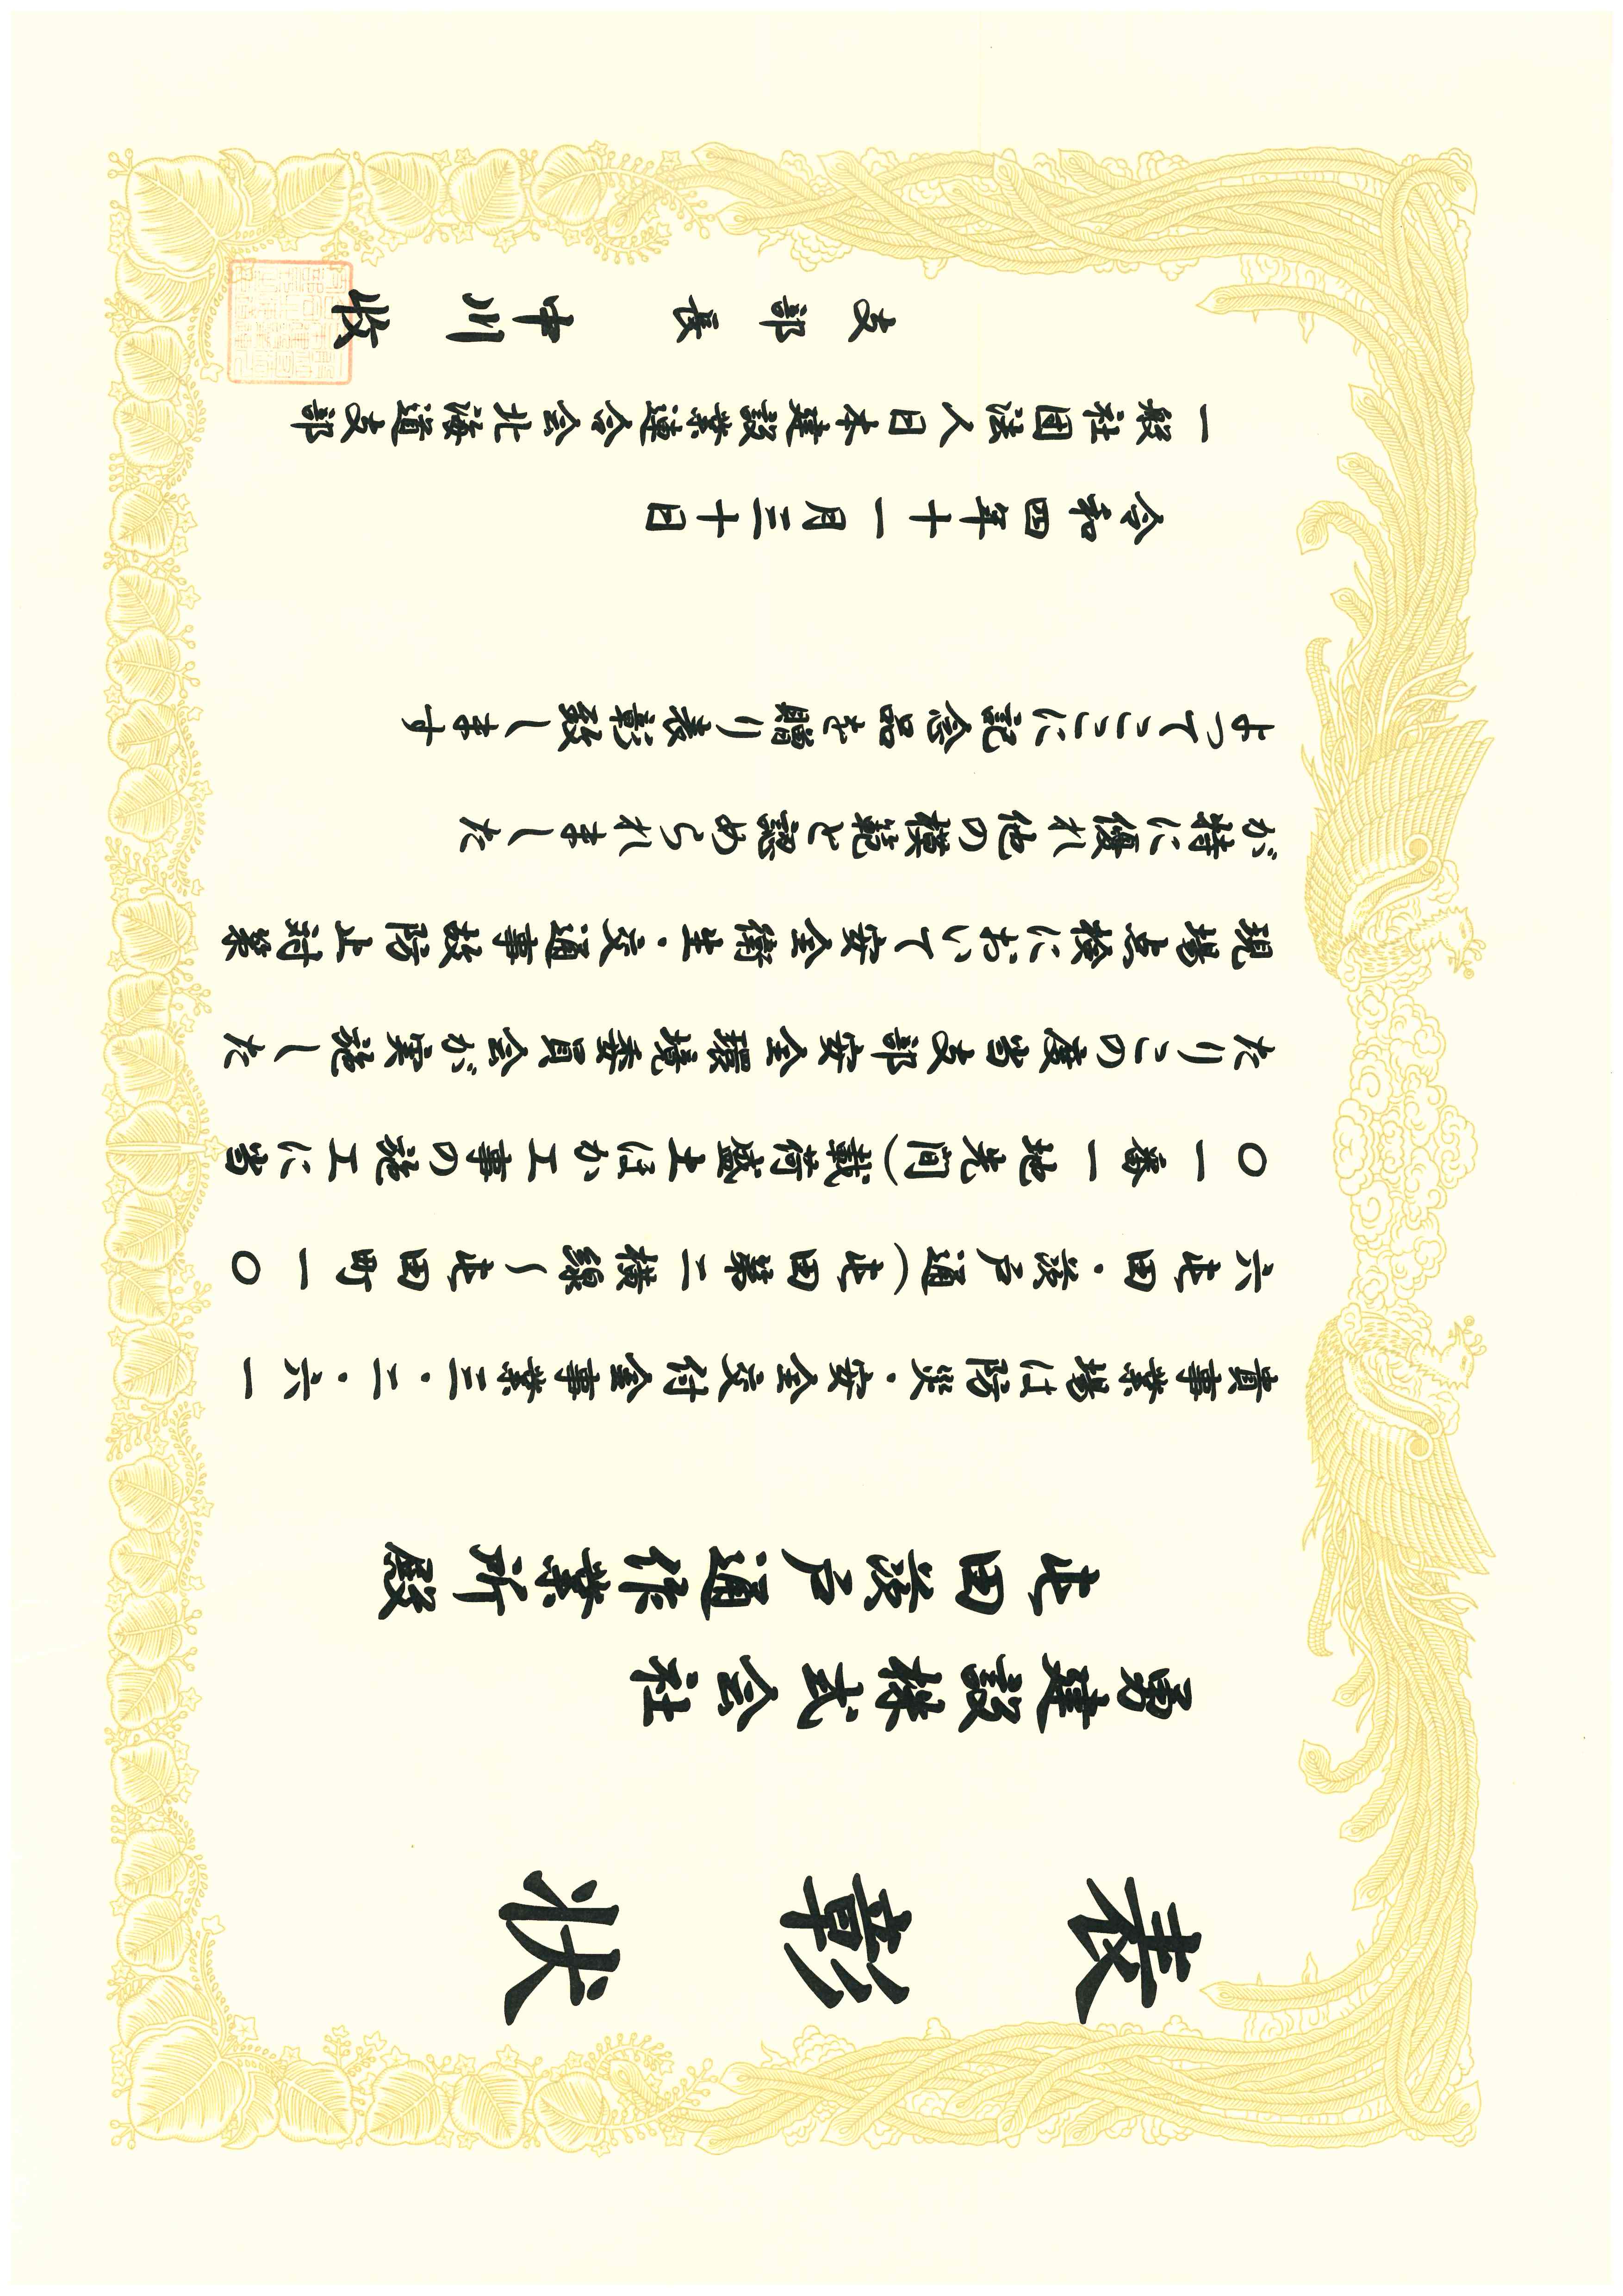 表彰状
勇建設株式会社
屯田茨戸通作業所殿
貴事業場は防災・安全交付金事業三・二・六一
六屯田・茨戸通(屯田第二横線～屯田町一〇
〇一番一地先間)載荷盛土ほか工事の施工に当
たりこの度当支部安全環境委員会が実施した
現場点検において安全衛生・交通事故防止対策
が特に優れ他の模範と認められました
よってここに記念品を贈り表彰致します
令和四年十一月三十日
一般社団法人日本建設業連合会北海道支部
支部長 中川 收